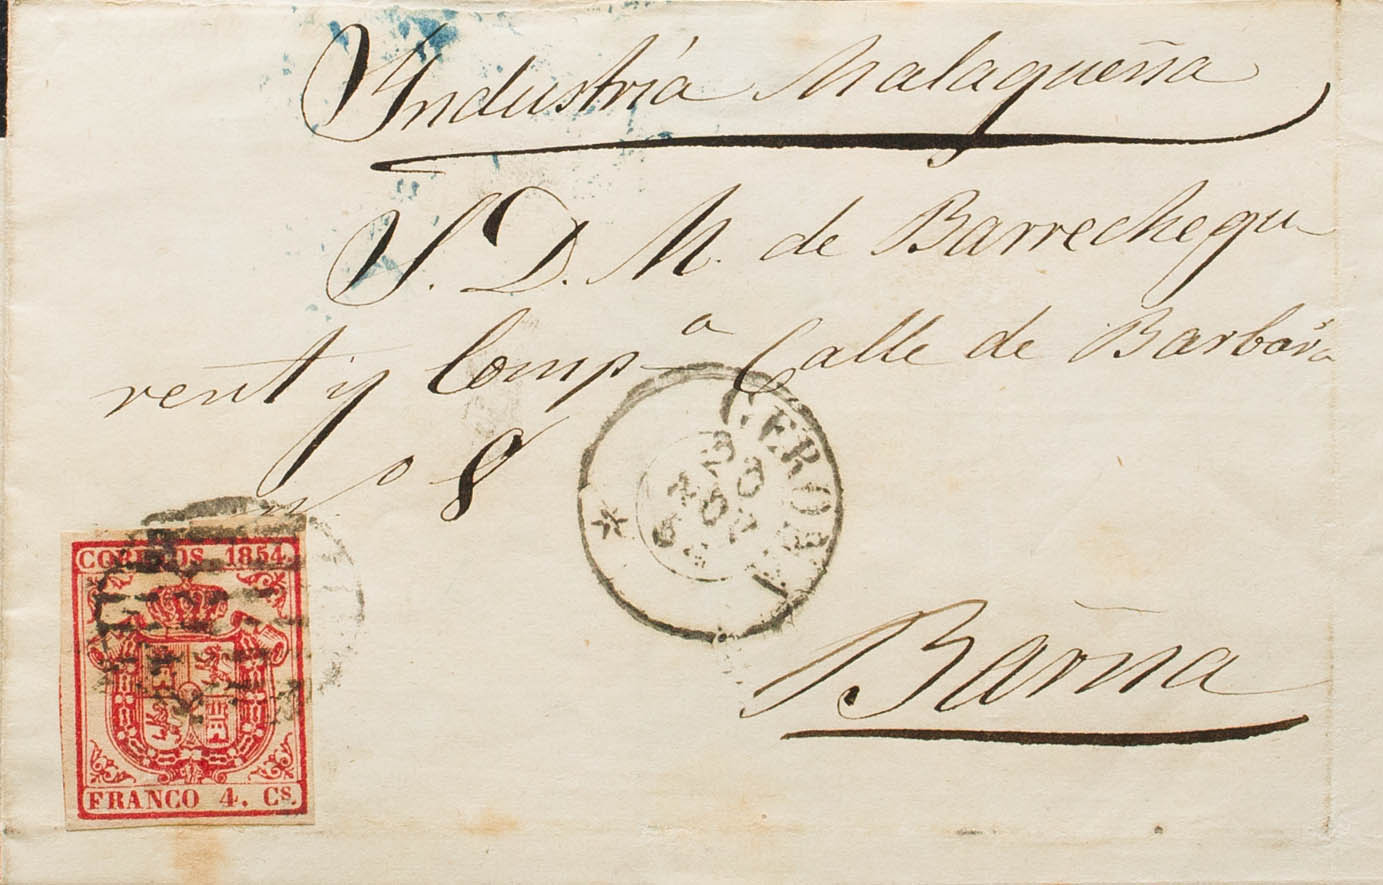 Yndustria Malagueña
S. D. M. de Barrechegu-
rent y Comp.a Calle de Barbara
No 8
GERONA
30
Barna
CORREOS 1854.
FRANCO 4. Cs.